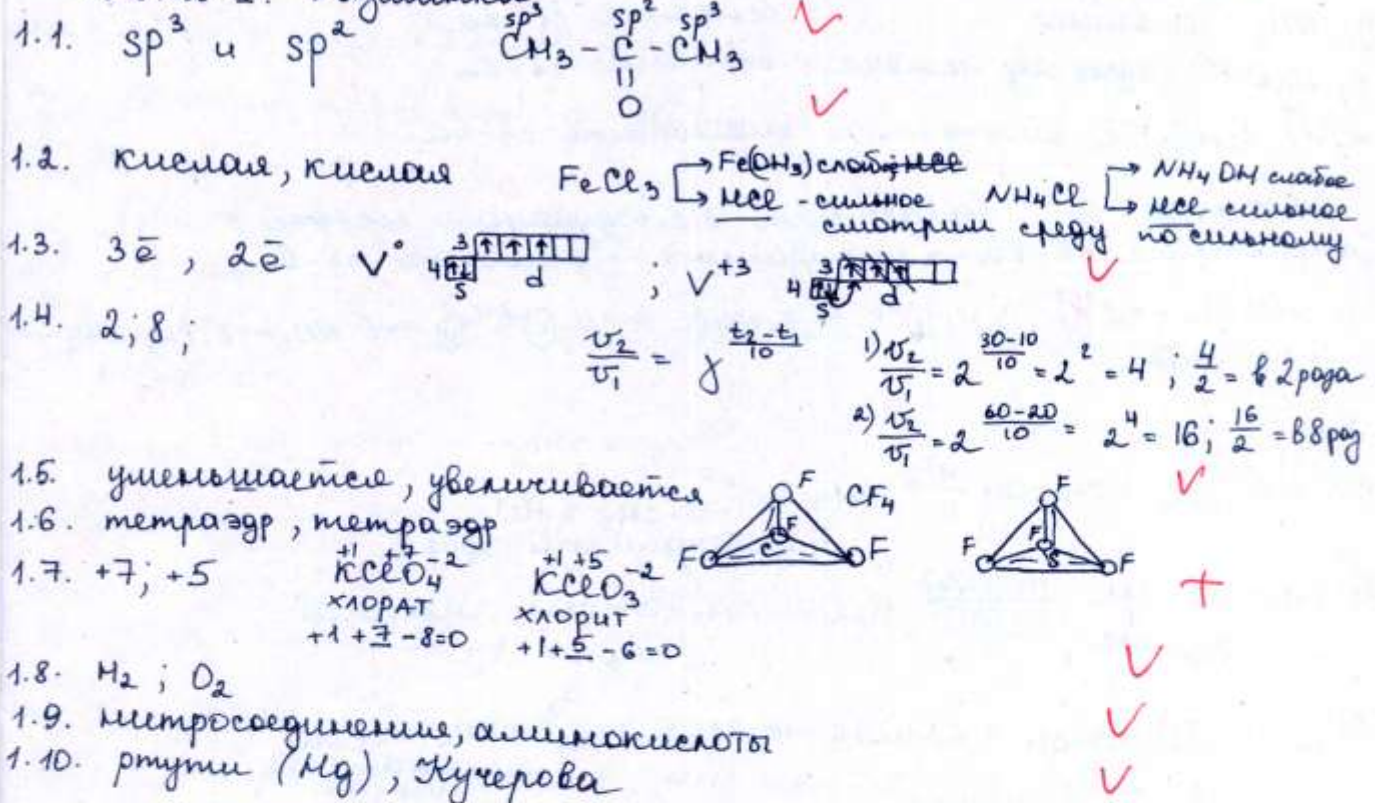 sp³ sp² sp³
1.1. sp³ и sp² CH₃ - C - CH₃
O
1.2. кислая, кислая FeCl₃ → Fe(OH₃) слаб; HCl
→ HCl - сильное
NH₄Cl → NH₄OH слабое
→ HCl сильное
смотрим среду по сильному
1.3. 3ē, 2ē V° 3 4 s d ; V⁺³ 3 4 s d
1.4. 2; 8; v₂/v₁ = γ^(t₂-t₁)/10 1) v₂/v₁ = 2^(30-10)/10 = 2² = 4 ; 4/2 = в 2 раза
2) v₂/v₁ = 2^(60-20)/10 = 2⁴ = 16; 16/2 = в 8 раз
1.5. уменьшается, увеличивается
1.6. тетраэдр, тетраэдр F CF₄ F C F F F F F S F
1.7. +7; +5 +1 +7 -2 KClO₄ +1 +5 -2 KClO₃
хлорат хлорит
+1+7-8=0 +1+5-6=0
1.8. H₂ ; O₂
1.9. нитросоединения, аминокислоты
1.10. ртути (Hg), Кучерова